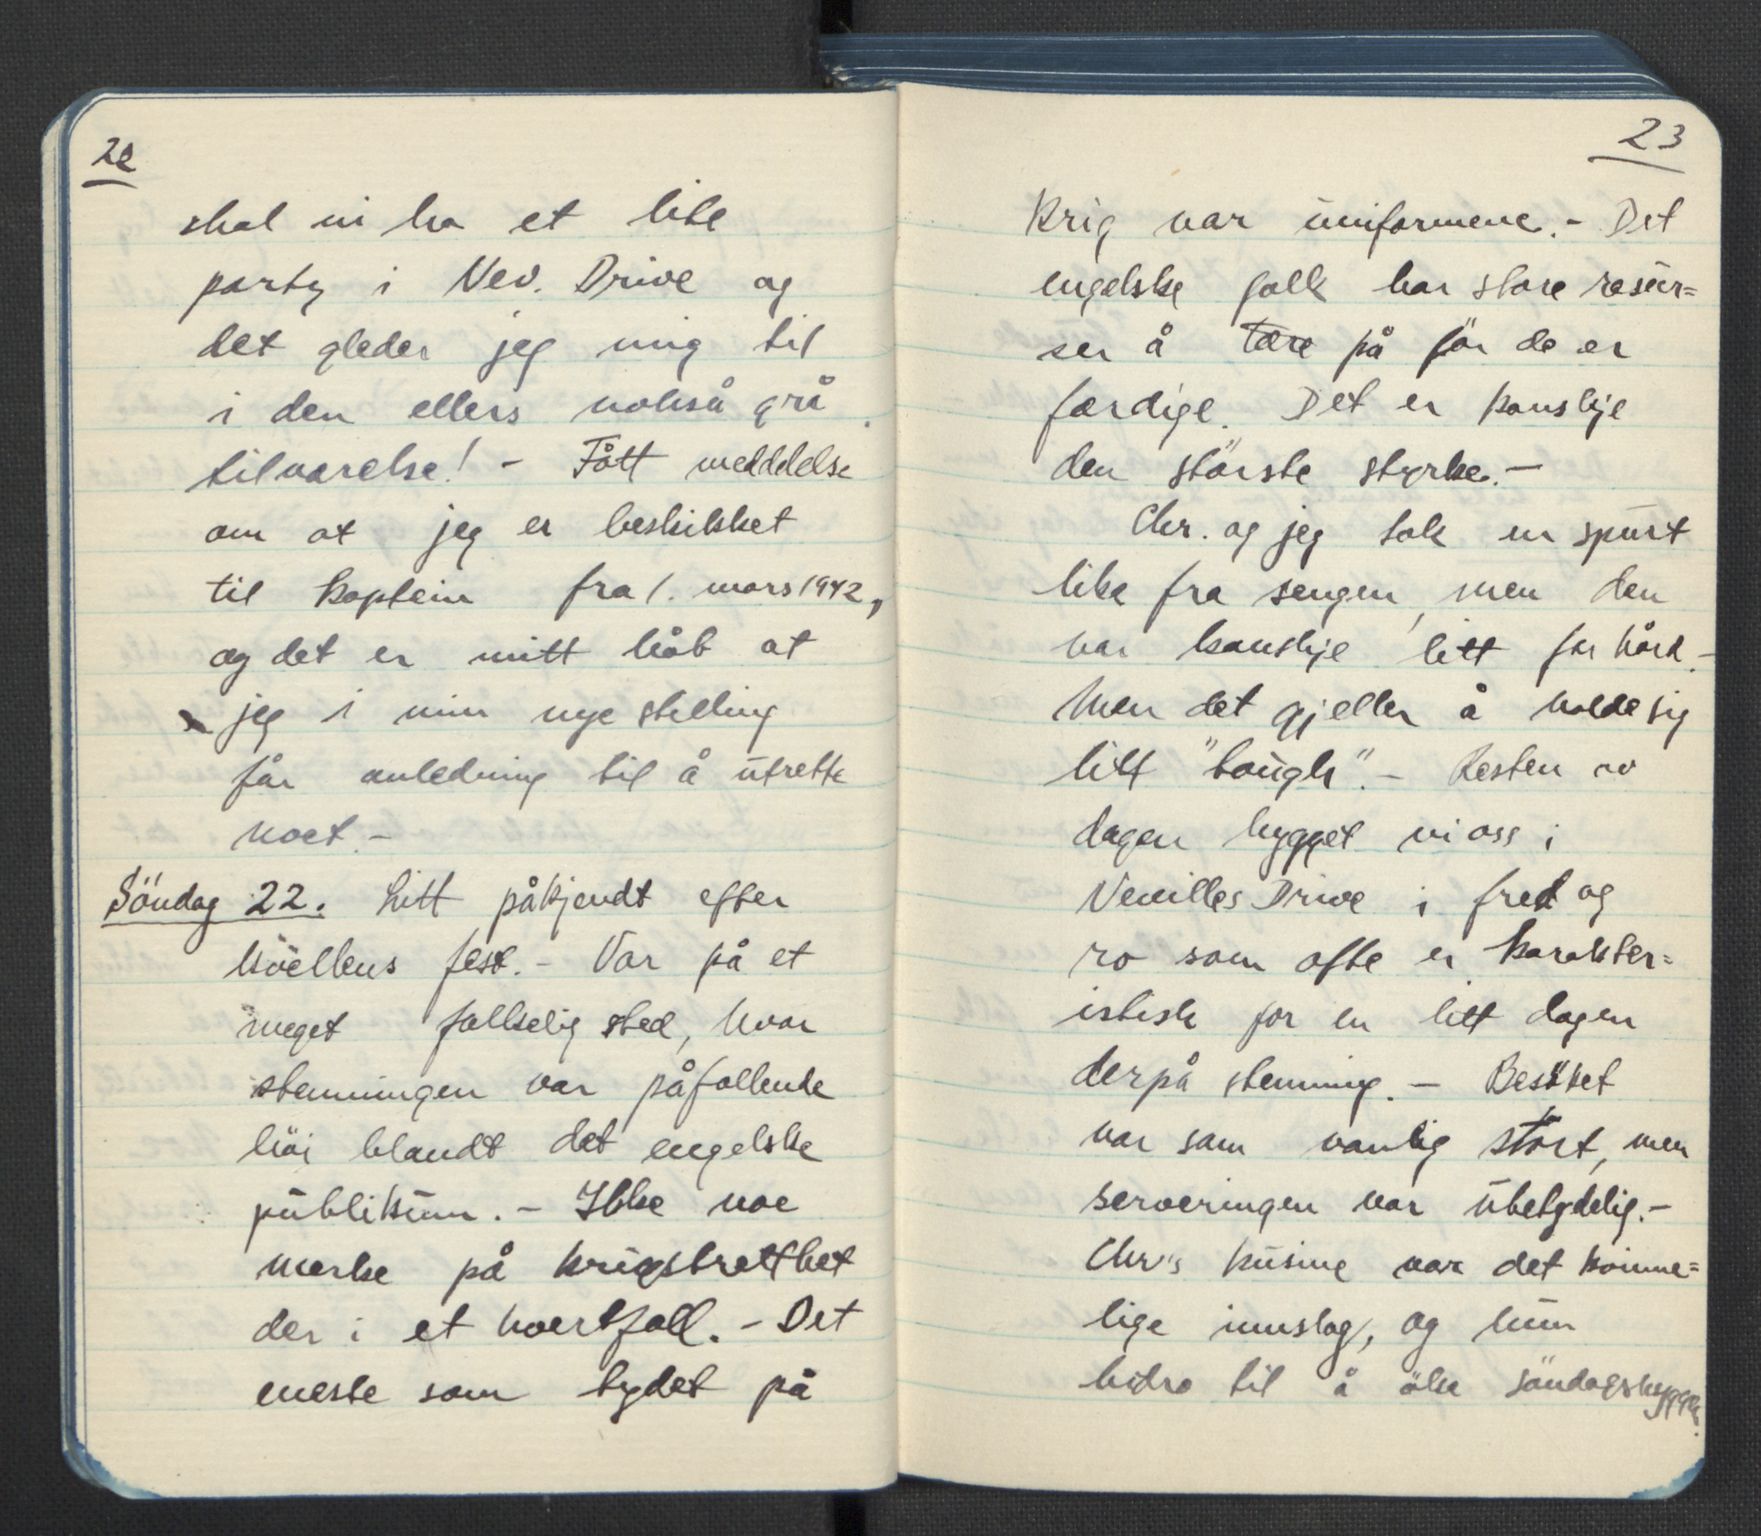 22
skal vi ha et lite
party i Nev. Drive og
det gleder jeg mig til
i den ellers nokså grå
tilværelse! - Fått meddelelse
om at jeg er beskikket
til kaptein fra 1. mars 1942,
og det er mitt håb at
jeg i min nye stilling
får anledning til å utrette
noet. -
Söndag 22. Litt påkjendt efter
kvellens fest. - Var på et
meget folkselig sted, hvor
stemningen var påfallende
höi blandt det engelske
publikum. - Ikke noe
merke på krigstretthet
der i et hvertfall. - Det
eneste som tydet på
23
Krig var uniformene. - Det
engelske folk har store resur=
ser å tære på för de er
færdige. Det er kanskje
den störste styrke. -
Chr. og jeg tok en spurt
like fra sengen, men den
var kanskje litt for hård. -
Men det gjeller å holde sig
litt "tough". - Resten av
dagen hygget vi oss i
Nevilles Drive i fred og
ro som ofte er karakter=
istisk for en litt dagen
derpå stemning. - Besöket
var som vanlig stort, men
serveringen var ubetydelig. -
Chr's kusine var det kvinne=
lige innslag, og hun
bidro til å öke söndagshyggen.